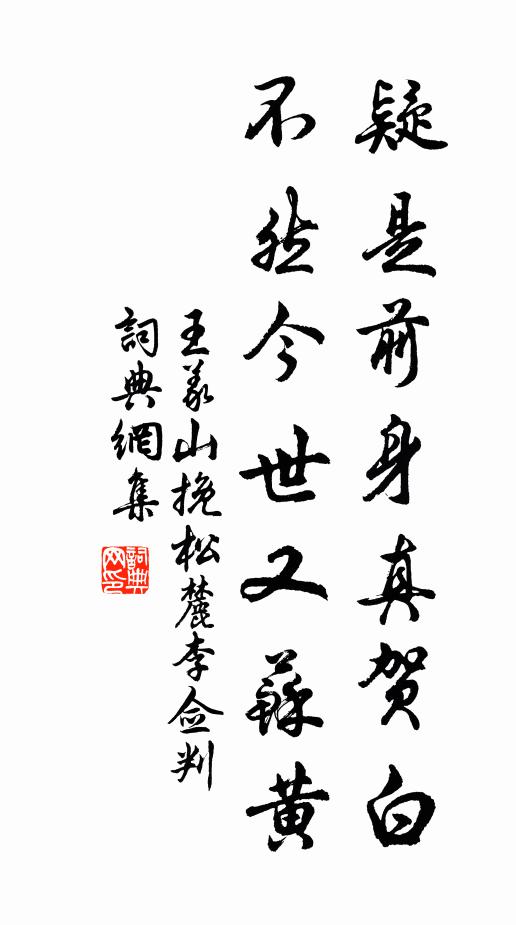 疑是前身真贺白
不然今世又蘇黄
王义山挽松麓李佥判
詞典網集
詞典网印